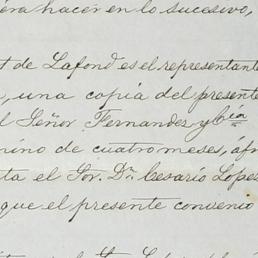 era hacer en lo sucesivo,
t de Lafond es el representante
, una copia del presente
l Señor Fernandez y Cía
mino de cuatro meses, á fin
ta el Sor. Dr. Cesario Lopez
que el presente convenio